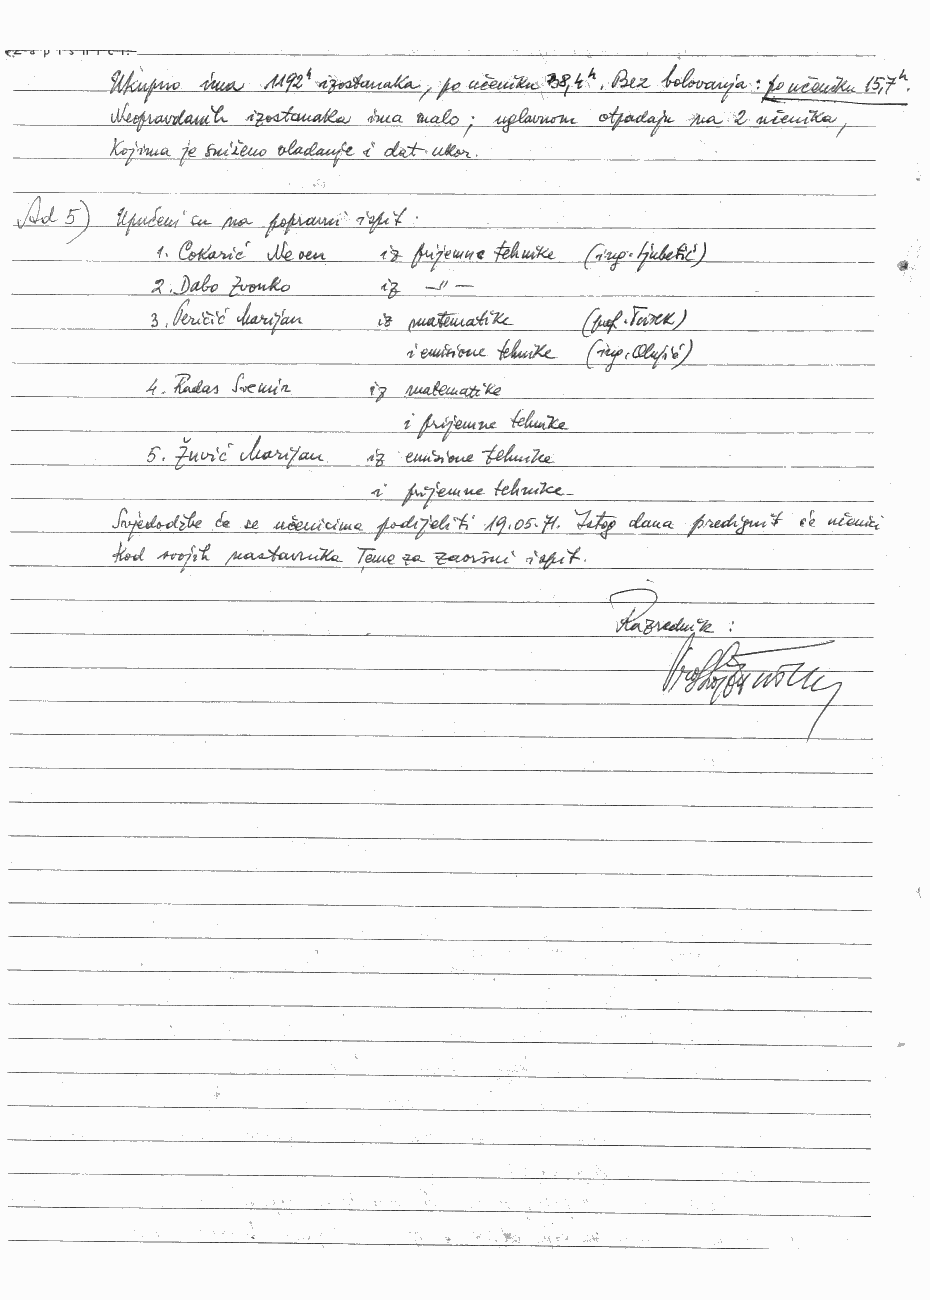 Zapisnici.
Ukupno ima 1192h izostanaka, po učeniku 38,4h. Bez bolovanja: po učeniku 15,7h.
Neopravdanih izostanaka ima malo; uglavnom otpadaju na 2 učenika,
kojima je sniženo vladanje i dat ukor.
Ad 5) Upućeni su na popravni ispit:
1. Cokarić Neven iz prijemne tehnike (ing. Ljubetić)
2. Dabo Zvonko iz —"—
3. Peričić Marijan iz matematike (prof.
i emisione tehnike (ing. Olujić)
4. Radas Svemir iz matematike
i prijemne tehnike
5. Žuvić Marijan iz emisione tehnike
i prijemne tehnike
Svjedodžbe će se učenicima podijeliti 19.05.71. Istog dana predignit će učenici
kod svojih nastavnika Teme za završni ispit.
Razrednik: